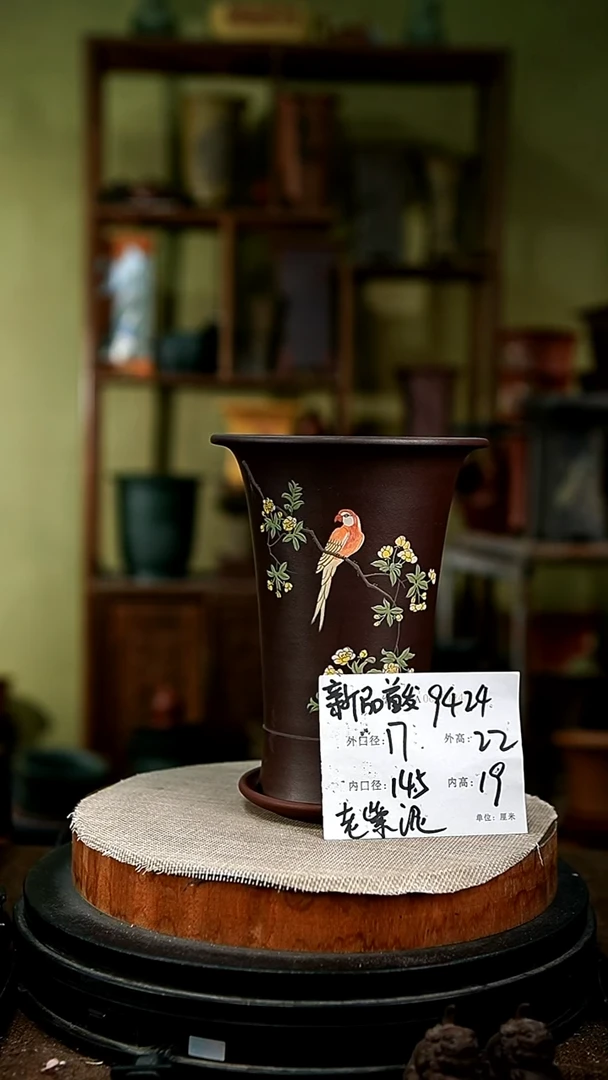 新品首发 9424
外口径: 17. 外高: 22
内口径: 14.5 内高: 19
老紫泥 单位: 厘米